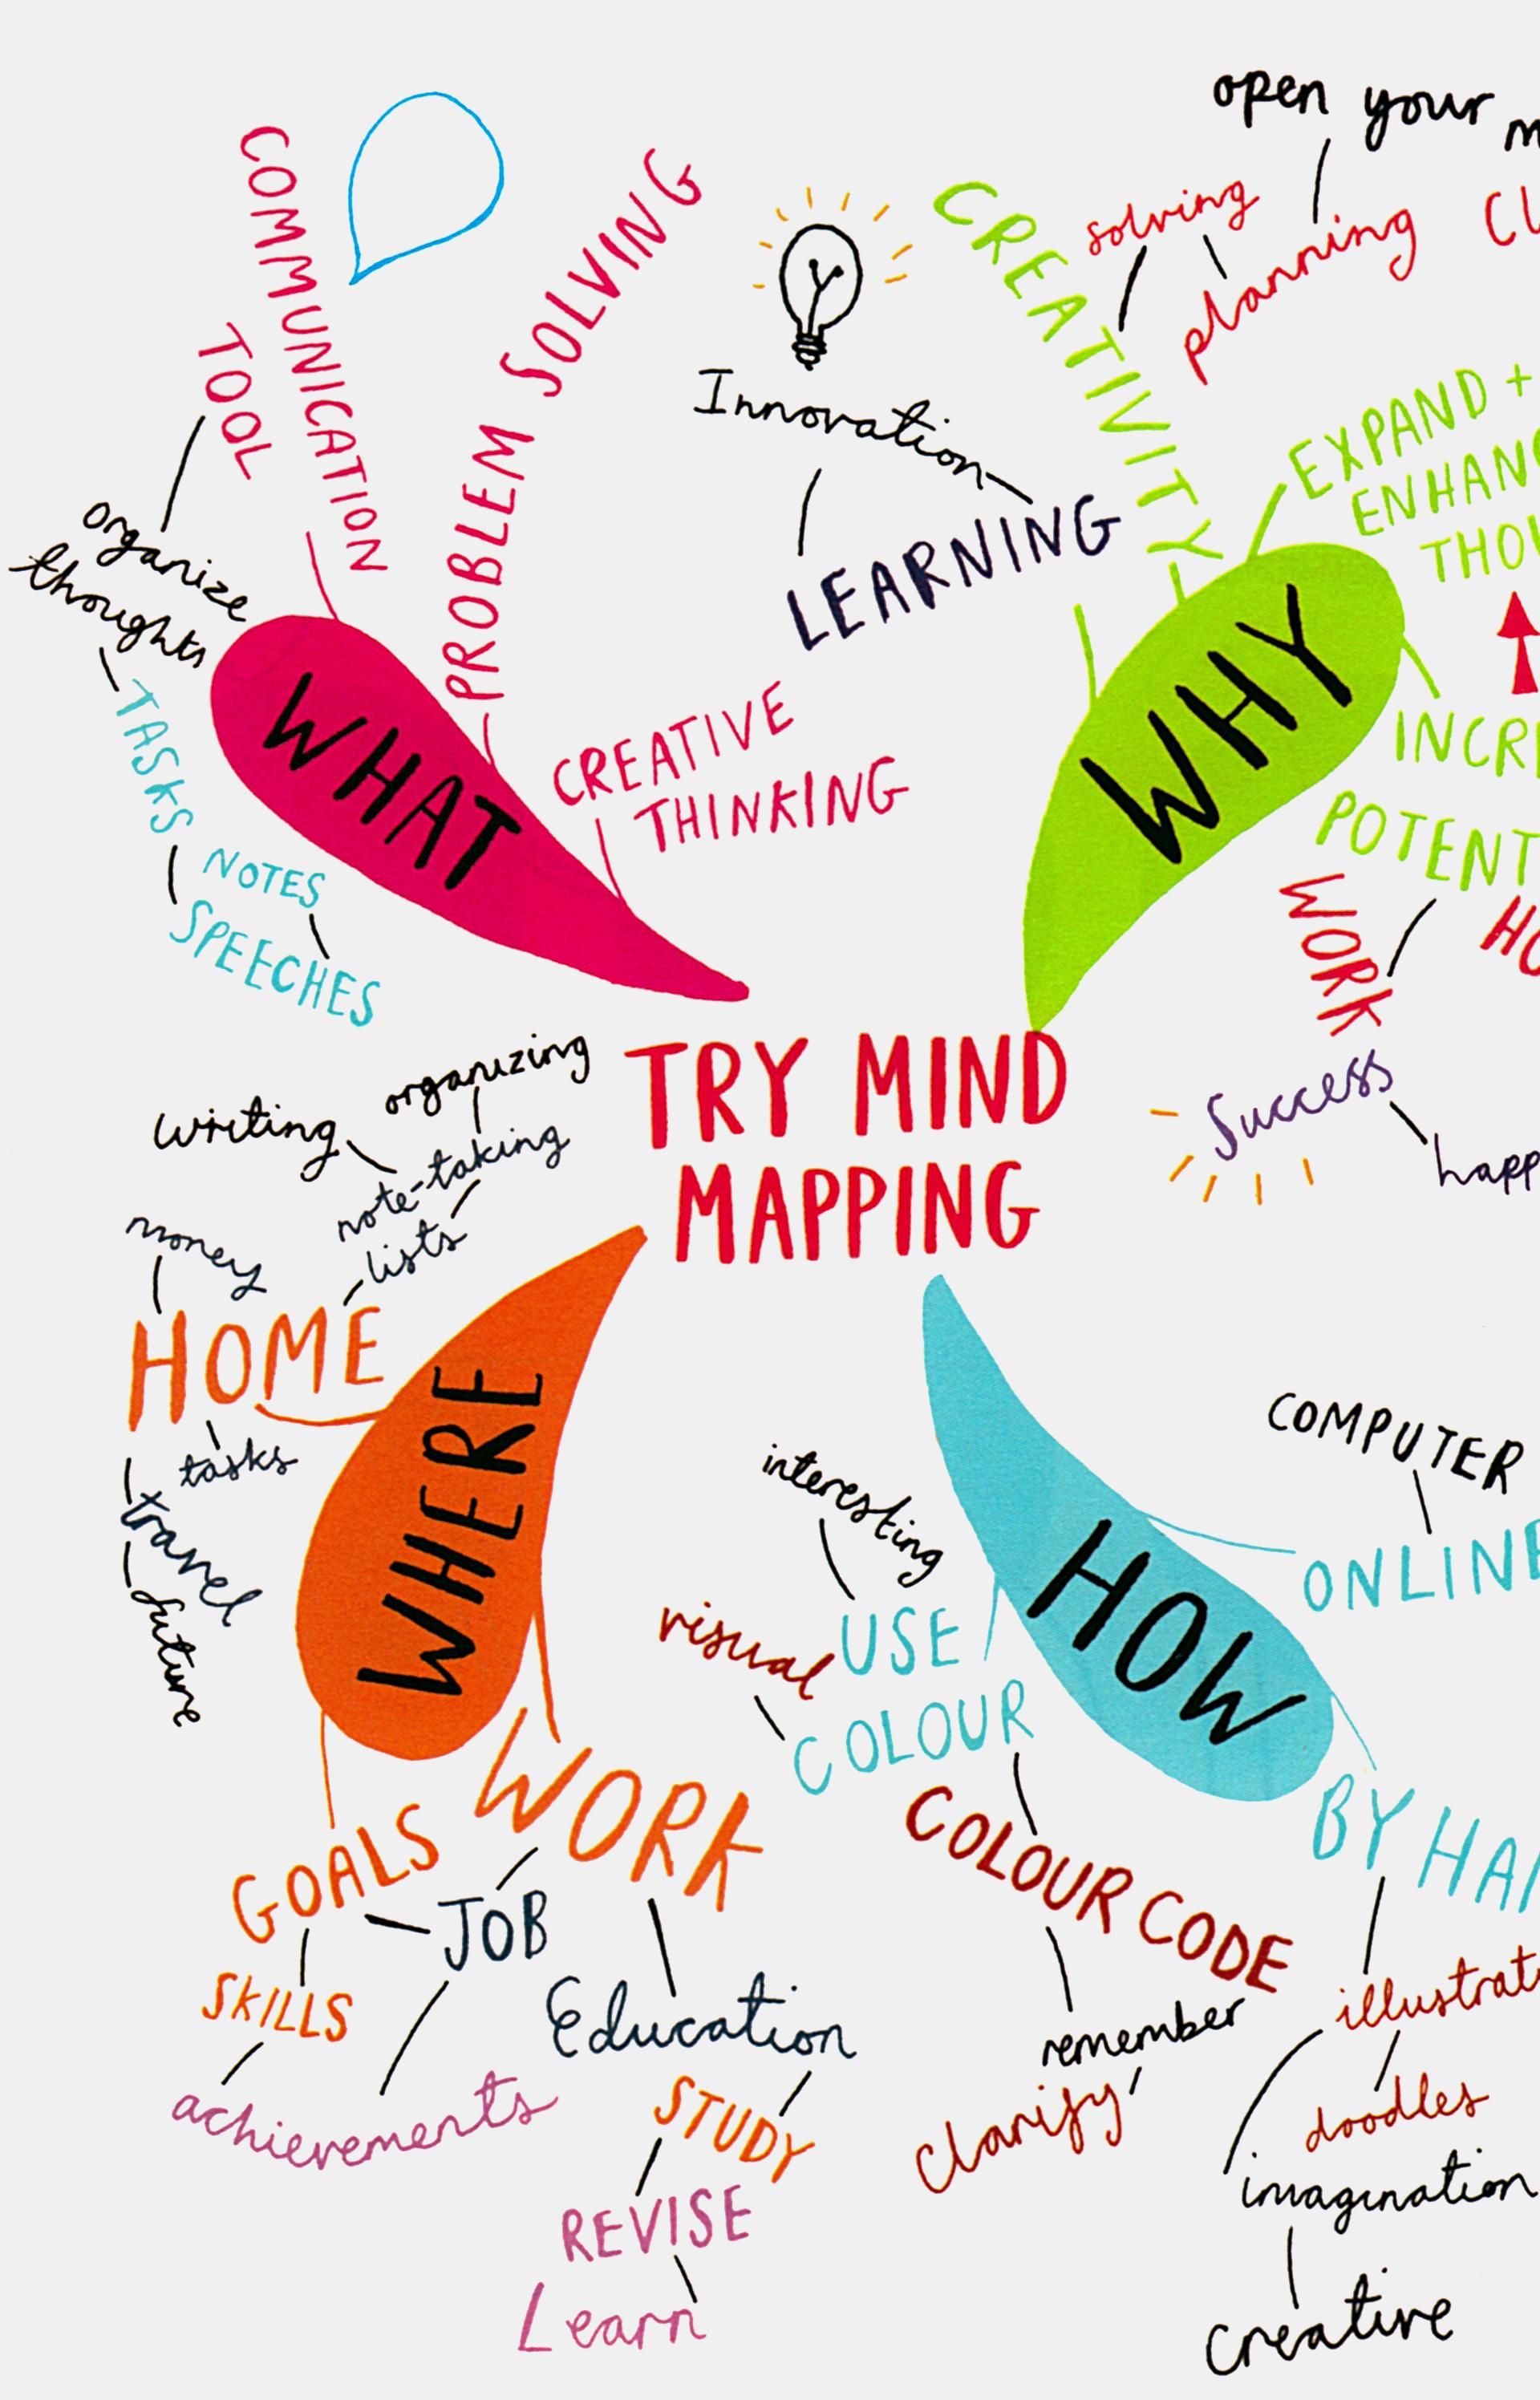 open your m
COMMUNICATION
TOOL
PROBLEM SOLVING
CREATIVITY
solving
planning
CL
Innovation
LEARNING
EXPAND +
ENHANC
THOU
organize
thoughts
TASKS
NOTES
SPEECHES
WHAT
CREATIVE
THINKING
WHY
INCRE
POTENT
WORK
HO
Success
happ
TRY MIND
MAPPING
organizing
writing
note-taking
lists
money
HOME
tasks
travel
future
WHERE
GOALS
WORK
JOB
SKILLS
achievements
Education
STUDY
REVISE
Learn
HOW
COMPUTER
ONLINE
interesting
visual
USE
COLOUR
COLOUR CODE
remember
clarify
BY HAN
illustrat
doodles
imagination
creative